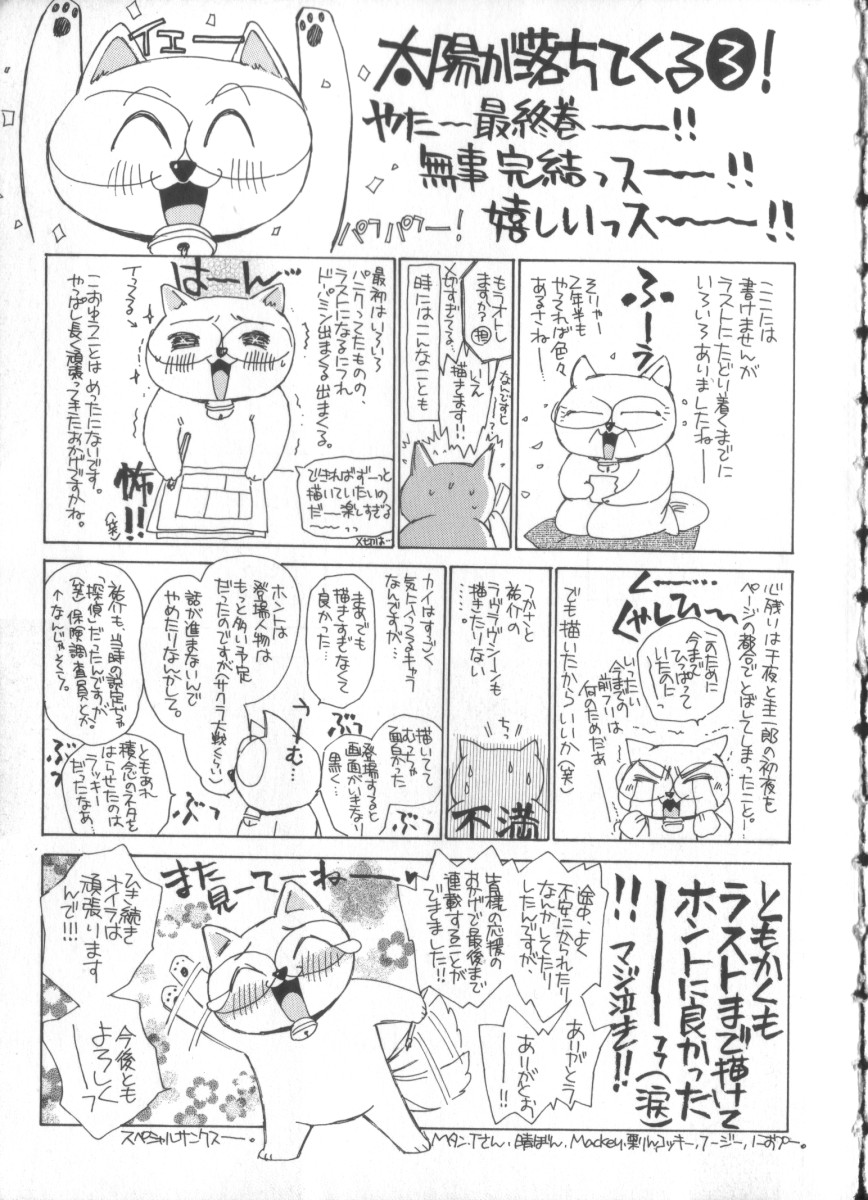 イエー
太陽が落ちてくる③!
やた〜最終巻――!!
無事完結っスー〜!!
嬉しいっス〜〜!!
パフパフー!
ここには
書けませんが
ラストにたどり着くまでに
いろいろありましたねー
ふーう
そりゃー
2年半も
やってれば色々
あるさねー
もうオトし
ますか?
担
〆切すぎてる…
なんですとー?
いえ
描きます!!
時にはこんなことも
最初はいろいろ
パニクってたものの、
ラストになるにつれ
ドーパミン出まくる出まくる。
はーん
できればずーっと
描いていたいの
だー楽しすぎる
〜っっ
〆切はー
怖!!
イってる
こおゆうことはめったにないです。
やっぱし長く頑張ってきたおかげですかね。
(笑)
心残りは千夜と圭一郎の初夜も
ページの都合でとばしてしまったこと。
く〜…
くやしひ〜
このために
今まで
ひっぱって
いたのにっ
いったい
今までの
前フリは
何のためだぁー
でも描いたからいいか(笑)
つかさと
祐介の
ラヴラヴシーンも
描きたりない
……。
ちっ
不満
カイはすごく
気に入ってるキャラ
なんですが…
まあでも
描きすぎなくて
良かった…
ぶっ
描いてて
むっちゃ
面白かった
登場すると
画面がいきなり
黒く…
ぶつ
うーむ…
ホントは
登場人物は
もっと多い予定
だったのですが(サクラ大戦くらい)
話が進まないんで
やめたりなんかして。
祐介も、当時の設定じゃ
「探偵」だったんですが
(笑)保険調査員とか。
↑なんじゃそりゃ。
ともあれ
積念のネタを
はらせたのは
ラッキー
だったなぁ…
ぶつ
ぶつ
ともかくも
ラストまで描けて
ホントに良かった
――っっ(涙)
!!マジ泣き!!
途中、よく
不安になったり
なんかしてたり
したんですが、
皆様の応援の
おかげで最後まで
連載することが
できました!!
ありがとう
ー!
ありがとお
ー!
また見ーてーねー
ひき続き
オイラは
頑張ります
んで!!!
今後とも
よろしく
ーっ
スペシャルサンクスー。
Mタン、Tさん、晴ぼん、Mackey、栗りん、コッキー、フージー、におぷー。